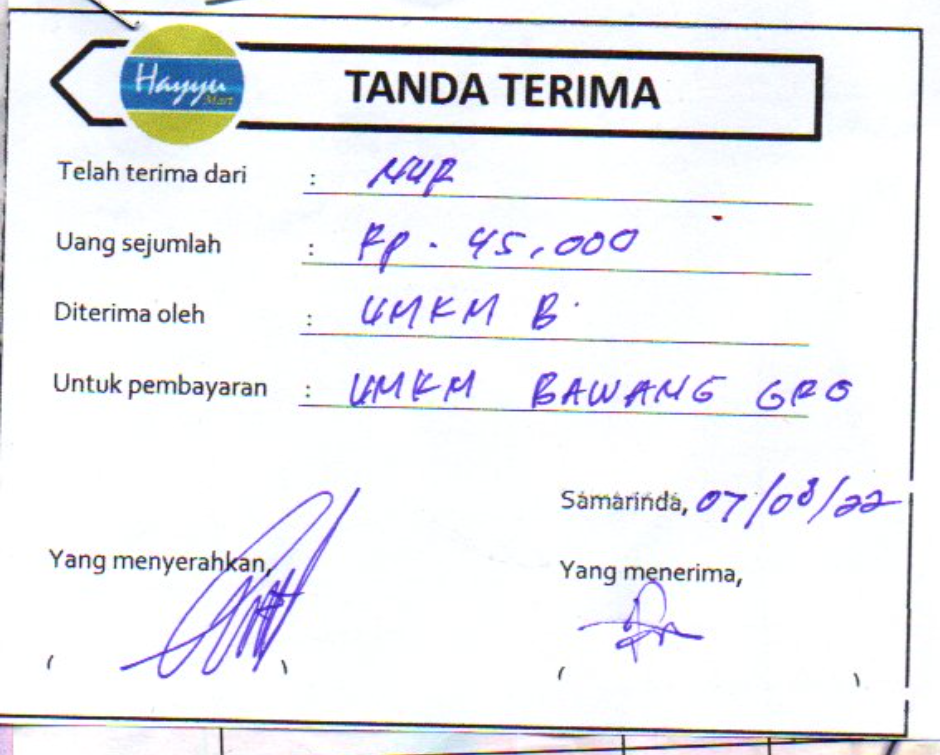 Hayyu
Mart
TANDA TERIMA
Telah terima dari : NUR
Uang sejumlah : Rp. 45,000
Diterima oleh : UMKM B.
Untuk pembayaran : UMKM BAWANG GRO
Samarinda, 07/08/22
Yang menyerahkan,
Yang menerima,
( )
( )